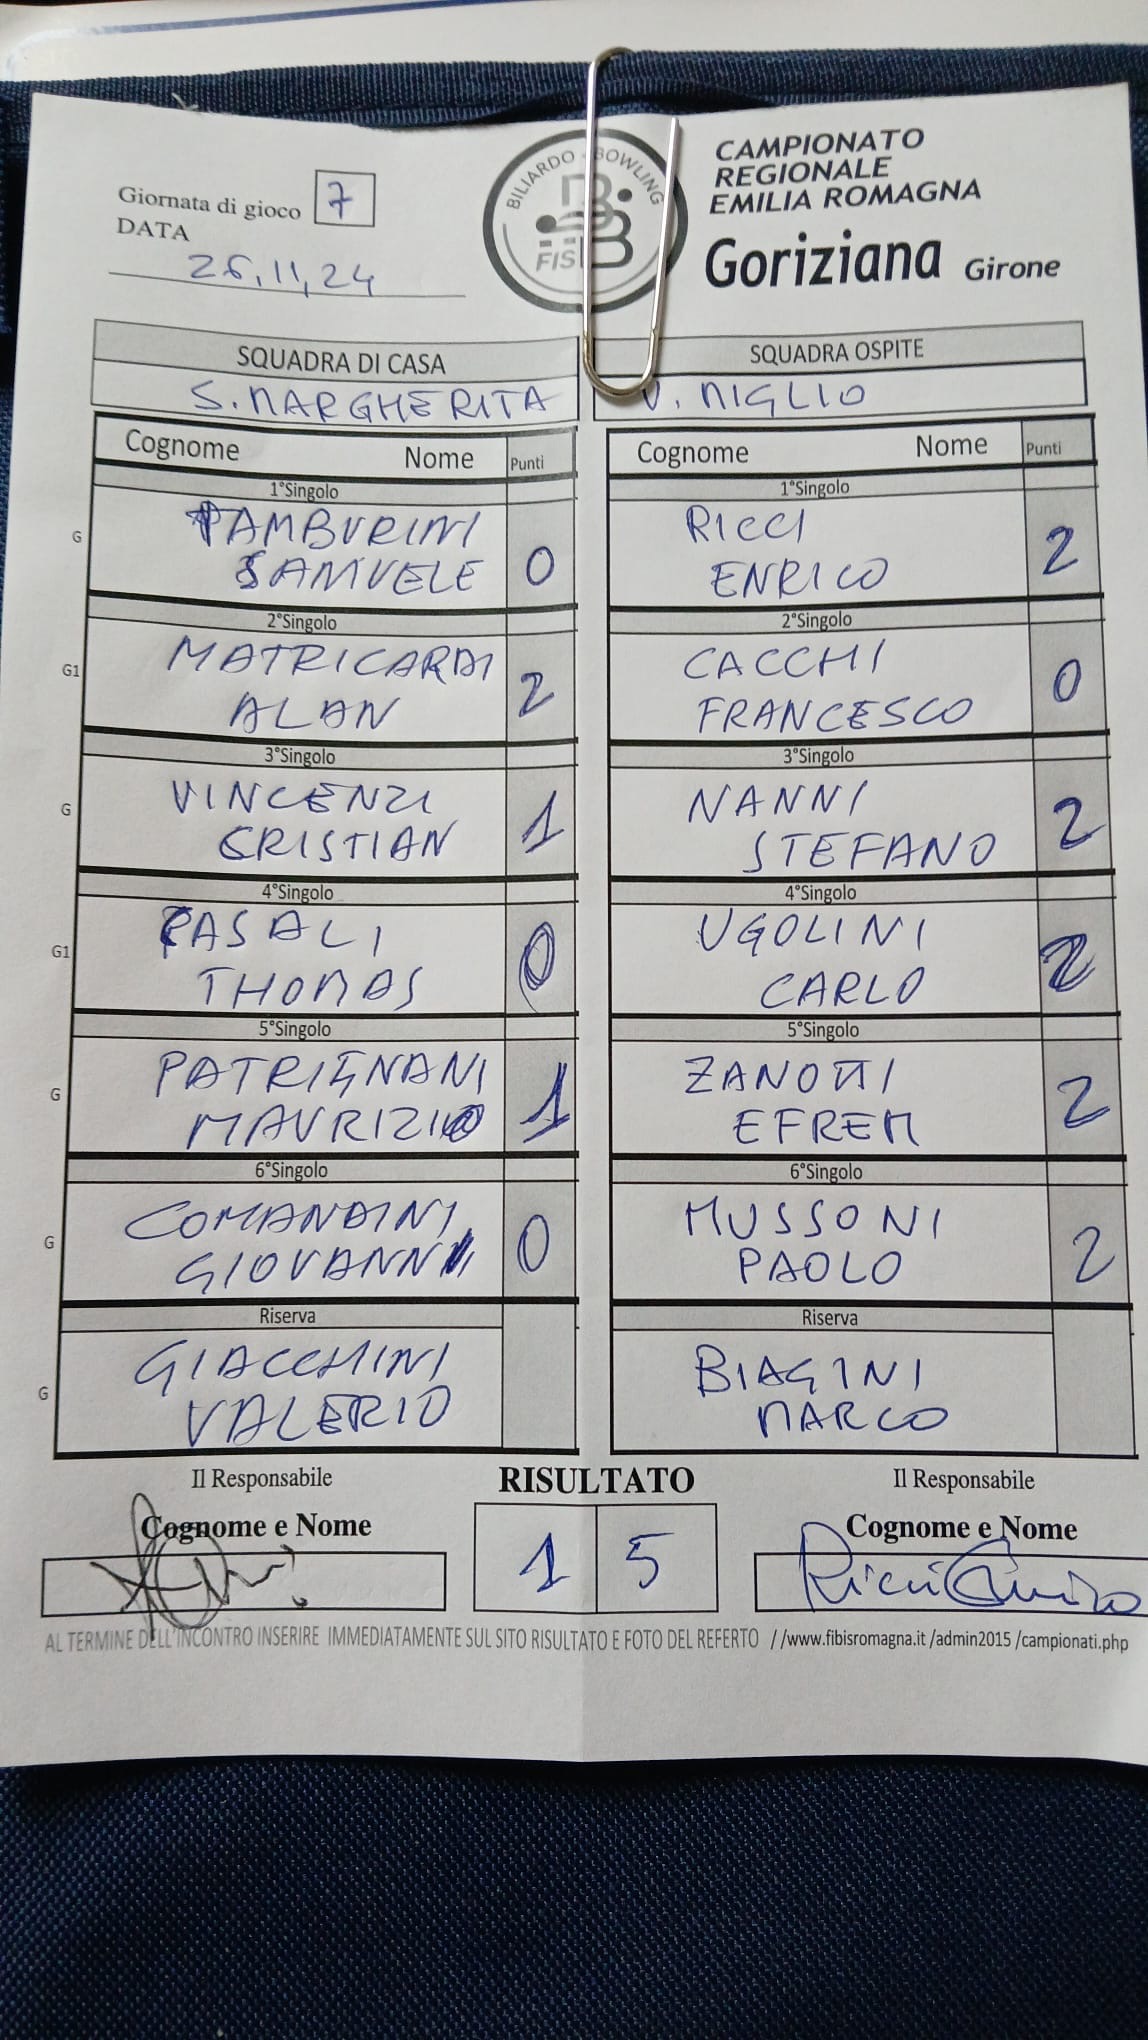 BILIARDO - BOWLING
FIS
CAMPIONATO
REGIONALE
EMILIA ROMAGNA
Goriziana Girone
Giornata di gioco 7
DATA
26,11,24
SQUADRA DI CASA SQUADRA OSPITE
S. MARGHERITA V. MIGLIO
Cognome Nome Punti Cognome Nome Punti
1°Singolo 1°Singolo
G TAMBURINI RICCI
SAMUELE 0 ENRICO 2
2°Singolo 2°Singolo
G1 MATRICARDI CACCHI
ALAN 2 FRANCESCO 0
3°Singolo 3°Singolo
G VINCENZI NANNI
CRISTIAN 1 STEFANO 2
4°Singolo 4°Singolo
G1 CASALI UGOLINI
THOMAS 0 CARLO 2
5°Singolo 5°Singolo
G PATRIGNANI ZANOTTI
MAURIZIO 1 EFREM 2
6°Singolo 6°Singolo
G COMANDINI MUSSONI
GIOVANNI 0 PAOLO 2
Riserva Riserva
G GIACCHINI BIAGINI
VALERIO MARCO
Il Responsabile RISULTATO Il Responsabile
Cognome e Nome Cognome e Nome
1 5 Ricci Enrico
AL TERMINE DELL'INCONTRO INSERIRE IMMEDIATAMENTE SUL SITO RISULTATO E FOTO DEL REFERTO //www.fibisromagna.it /admin2015 /campionati.php